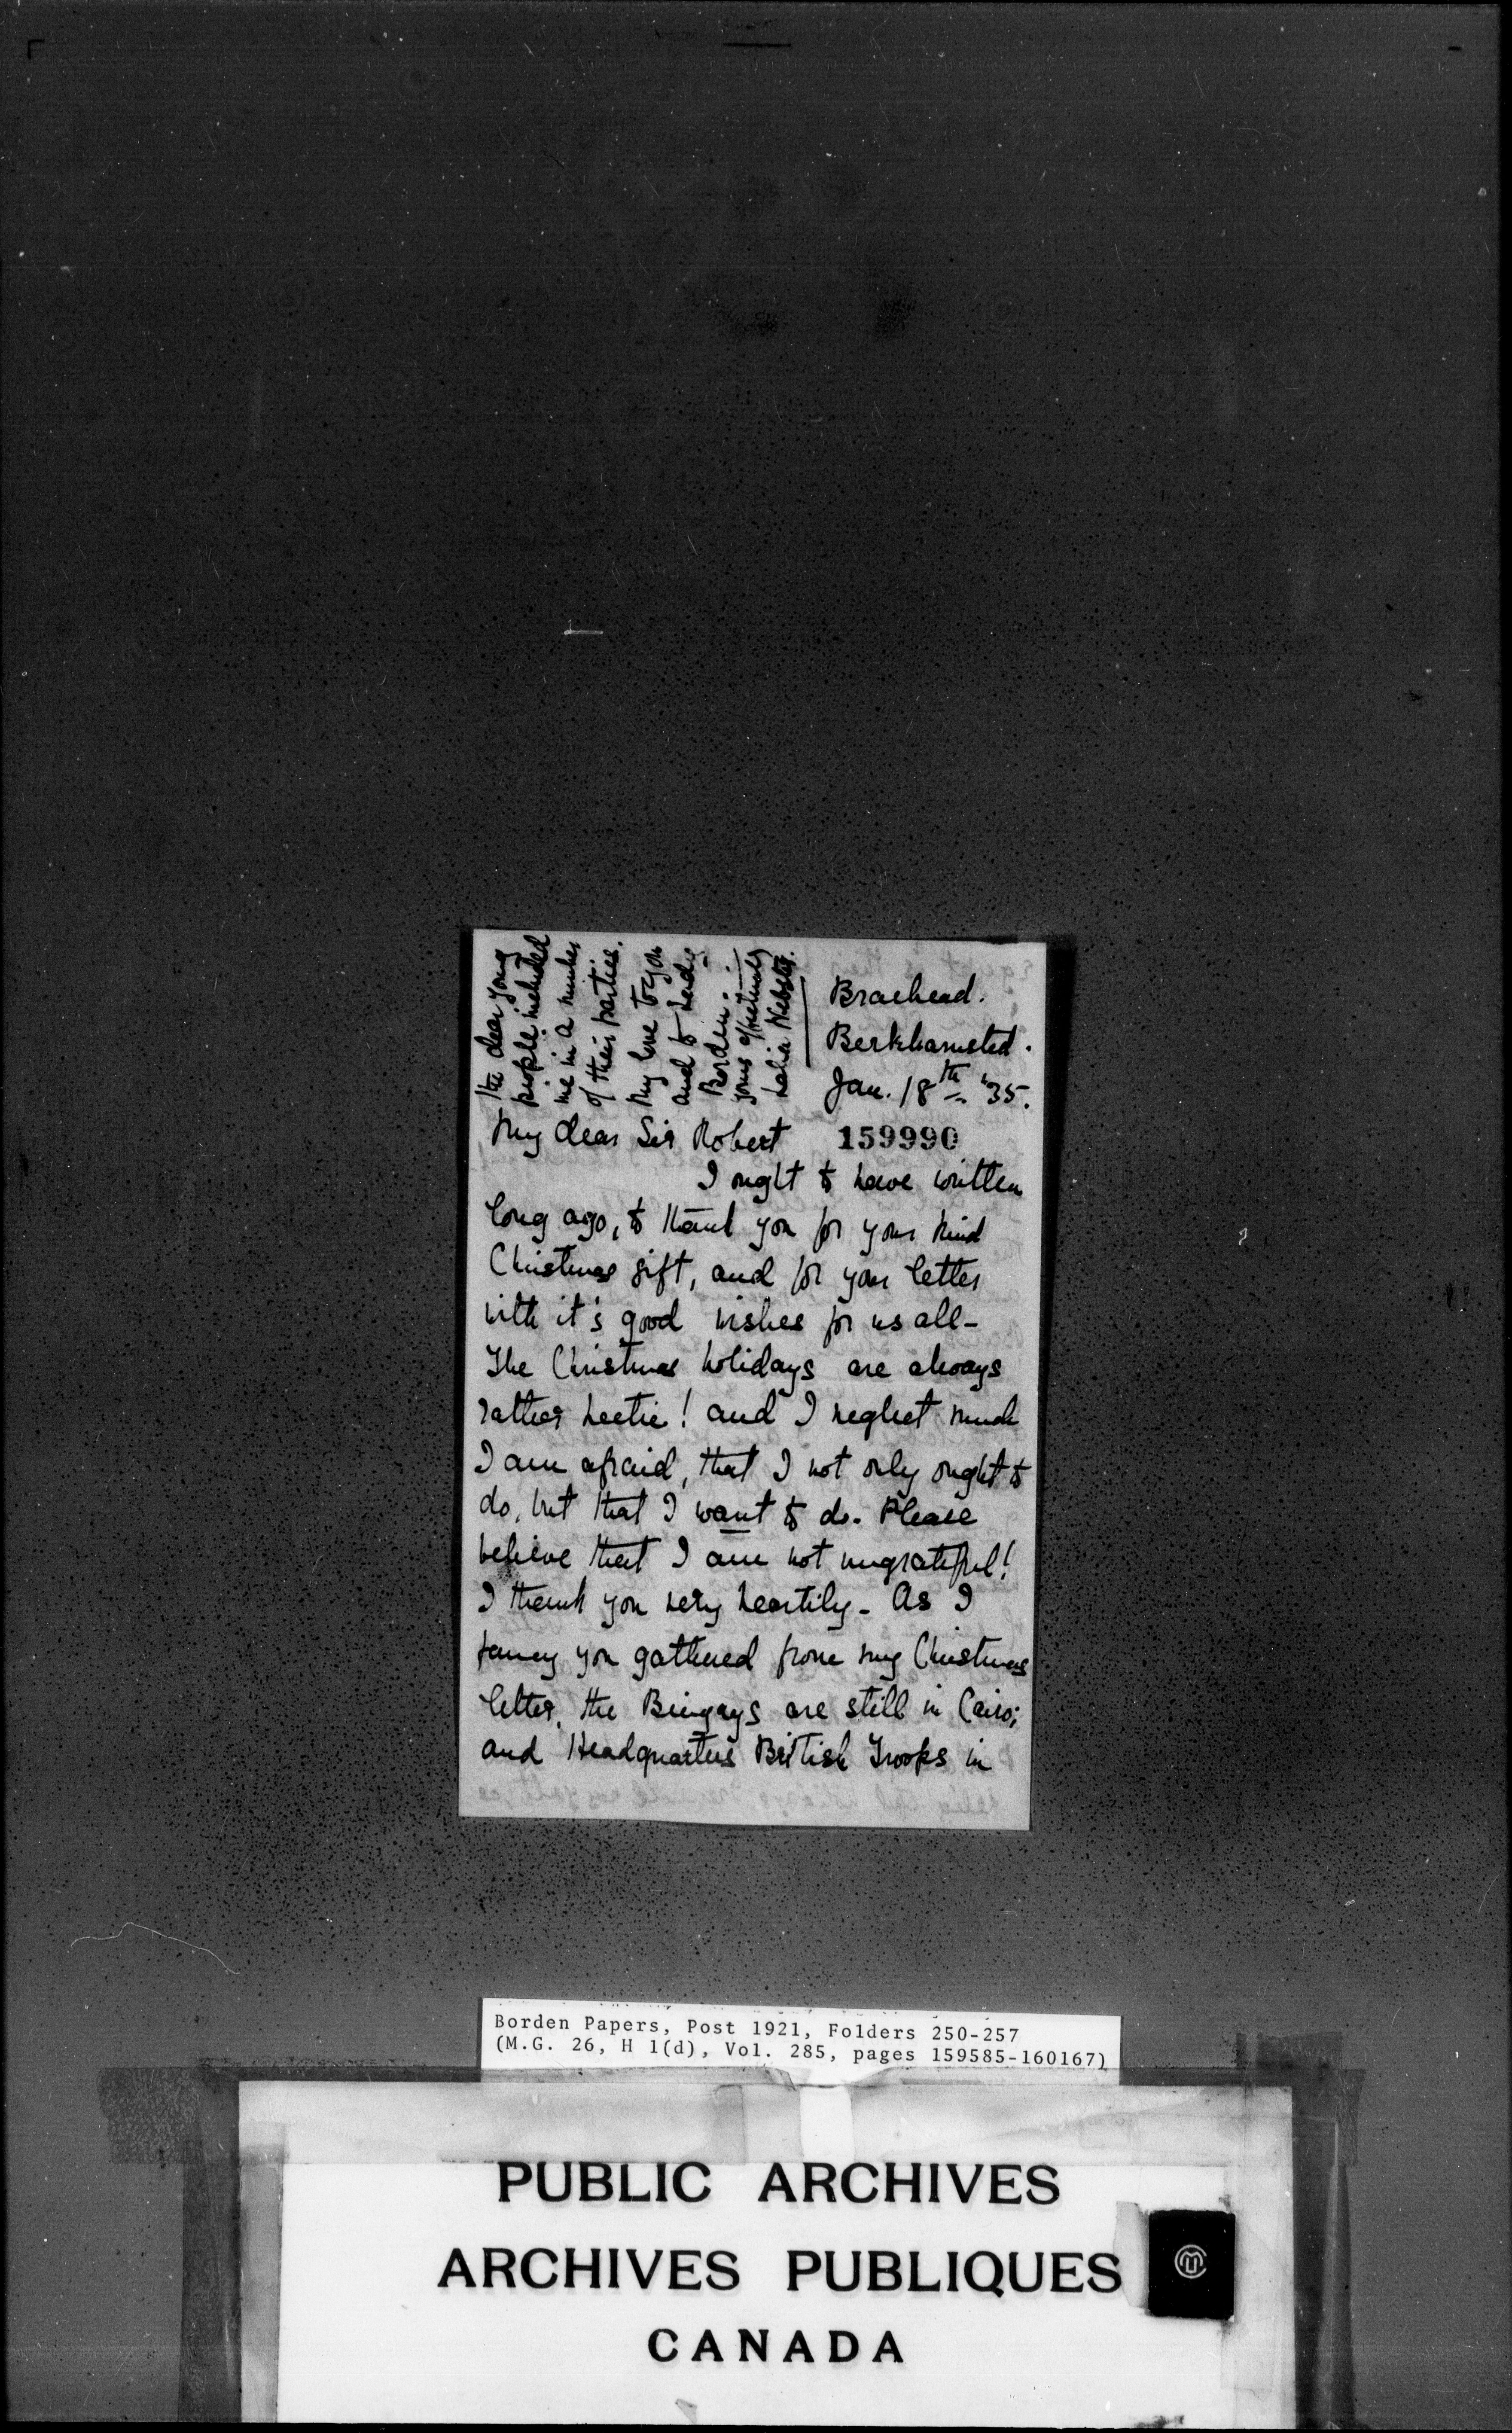 the dear young
people included
me in a number
of their parties.
My love to you
and to Lady
Borden.
yours affectionately
Webster.
Braehead.
Berkhamsted.
Jan. 18th '35.
My dear Sir Robert
159990
I ought to have written
long ago, to thank you for your kind
Christmas gift, and for your letter
with it's good wishes for us all -
The Christmas holidays are always
rather hectic! and I neglect much
I am afraid, that I not only ought to
do, but that I want to do. Please
believe that I am not ungrateful!
I thank you very heartily - As I
fancy you gathered from my Christmas
letter, the Bingays are still in Cairo;
and Headquarters British Troops in
Borden Papers, Post 1921, Folders 250-257
(M.G. 26, H 1(d), Vol. 285, pages 159585-160167)
PUBLIC ARCHIVES
ARCHIVES PUBLIQUES
CANADA